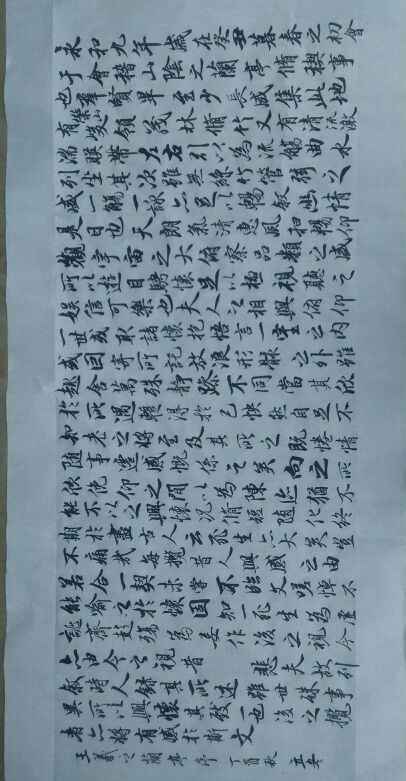 永和九年歲在癸丑暮春之初會
于會稽山陰之蘭亭脩禊事
也羣賢畢至少長咸集此地
有崇山峻領茂林脩竹又有清流激
湍暎帶左右引以為流觴曲水
列坐其次雖無絲竹管弦之
盛一觴一詠亦足以暢敘幽情
是日也天朗氣清惠風和暢仰
觀宇宙之大俯察品類之盛
所以遊目騁懷足以極視聽之
娛信可樂也夫人之相與俯仰
一世或取諸懷抱悟言一室之內
或因寄所託放浪形骸之外雖
趣舍萬殊靜躁不同當其欣
於所遇暫得於己快然自足不
知老之將至及其所之既惓情
隨事遷感慨係之矣向之所
欣俛仰之間以為陳迹猶不
能不以之興懷況脩短隨化終
期於盡古人云死生亦大矣豈
不痛哉每攬昔人興感之由
若合一契未嘗不臨文嗟悼不
能喻之於懷固知一死生為虛
誕齊彭殤為妄作後之視今
亦由今之視昔悲夫故列
敘時人錄其所述雖世殊事
異所以興懷其致一也後之攬
者亦將有感於斯文
王羲之蘭亭序 丁酉秋